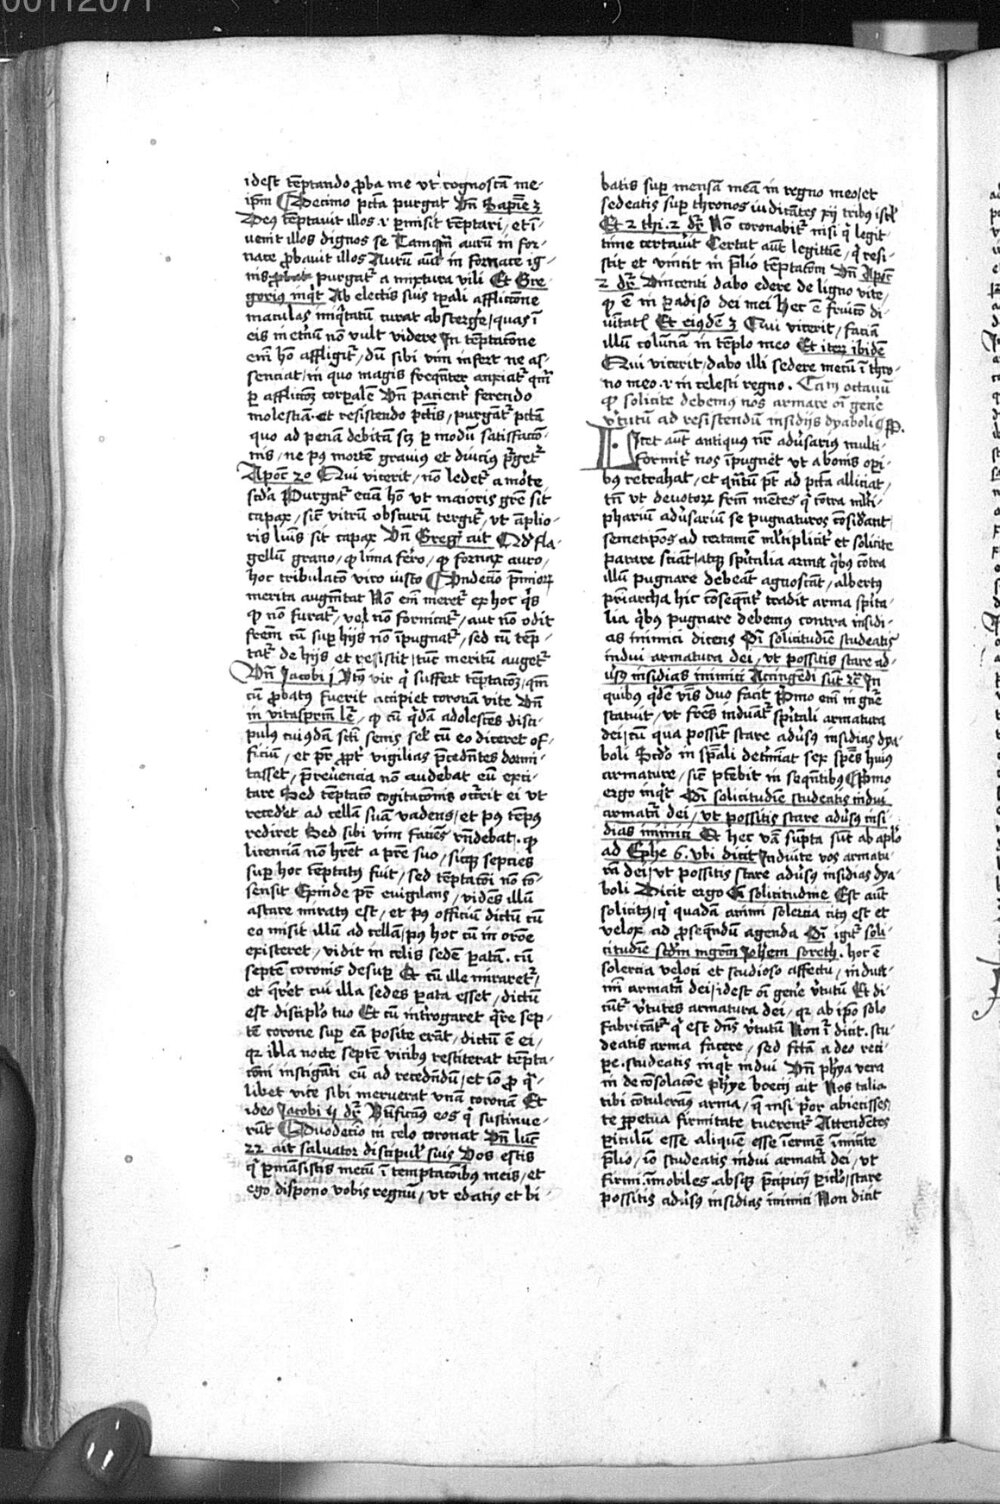 00112071
idest te͞ptando ꝓba me vt cognosca͞ me
ip͞m Decimo pc͞ta purgat Vn͞ Sapie͞ 3
Deus te͞ptauit illos .i. p̱misit te͞ptari / et i͞
uenit illos dignos se Tamq͞m auru͞ in for-
nace ꝓbauit illos Auru͞ aut͞ in fornace ig-
nis purgat᷑ a mixtura vili Et Gre-
gorius inq͞t Ab electis suis tp̱ali afflicc͞one
maculas iniq͞tatu͞ curat absterge͞ / quas i͞
eis in et͞nu͞ non vult videre In te͞ptac͞one
em͞ ho͞ affligit᷑ / du͞ sibi vim infert ne as-
senciat / in quo magis freque͞nter anxiat᷑ q͞m
p̱ afflicc͞om corp̱ale͞ Vn͞ pacient᷑ ferendo
molestia͞ et resistendo pc͞tis / purga͞t᷑ pc͞ta
quo ad pena͞ debita͞ sc͞z p̱ modu͞ satisfacc͞o-
nis / ne pꝰ morte͞ grauius et diucius p᷑get᷑
Apoc͞ 20 Qui vicerit / no͞ ledet᷑ a mo᷑te
sc͞da Purgat᷑ ecia͞ ho͞ vt maioris gr͞e sit
capax / sic᷑ vitru͞ obscuru͞ tergit᷑ / vt a͞plio-
ris lu͞is sit capax Vn͞ Greg᷑ ait Qd᷑ fla-
gellu͞ grano / ꝙ lima ferro / ꝙ fornax auro /
hoc tribulac͞o viro iusto Vndecimo p͞mior͞
merita augm͞tat No͞ em͞ meret᷑ ex hoc q͞s
ꝙ no͞ furat᷑ / vel no͞ fornicat᷑ / aut no͞ odit
fr͞em cu͞ sup̱ hijs no͞ i͞pugnat᷑ / sed cu͞ te͞p-
tat᷑ de hijs et resistit / tu͞c meritu͞ auget᷑
Vn͞ Jacobi j Bt͞us vir q͞ suffert te͞ptac͞o͞z / q͞m
cu͞ ꝓbatꝰ fuerit accipiet corona͞ vite Vn͞
in vitaspr͞m le᷑ / ꝙ cu͞ q͞da͞ adolesce͞s disci-
pulꝰ cuiusda͞ sc͞ti senis sel᷑ cu͞ eo diceret of-
ficiu͞ / et pr͞ ꝓpt᷑ vigilias p͞cede͞ntes dormi-
tasset / p͞reuerencia no͞ audebat eu͞ exci-
tare Sed te͞ptac͞o cogitac͞onis occ͞rit ei vt
recederet ad cella͞ sua͞ vadens / et pꝰ te͞pꝰ
rediret Sed sibi vim facie͞s r͞ndebat / ꝙ
licencia͞ no͞ h͞ret a pr͞e suo / sicqꝫ sepcies
sup̱ hoc te͞ptatꝰ fuit / sed te͞ptac͞oni no͞ co͞-
sensit Exinde pr͞ euigilans / vide͞s illu͞
astare miratꝰ est / et pꝰ officiu͞ dictu͞ cu͞
eo misit illu͞ ad cella͞ / pꝰ hoc cu͞ in or͞one
existeret / vidit in celis sede͞ p̱ata͞ . cu͞
septe͞ coronis desup̱ Et cu͞ ille miraret᷑ /
et q͞reret cui illa sedes p̱ata esset / dictu͞
est discipl͞o tuo Et cu͞ int᷑rogaret q͞re sep-
te͞ corone sup̱ ea͞ posite era͞t / dictu͞ e͞ ei /
qr͞ illa nocte septe͞ vicibꝰ restiterat te͞pta-
c͞oni instiganti eu͞ ad recede͞ndu͞ / et io͞ ꝓ q͞-
libet vice sibi meruerat vna͞ corona͞ Et
ideo Jacobi v d᷑r Bt͞ificam͞ eos q͞ sustinue-
ru͞t Duodecimo in celo coronat Vn͞ luc͞
22 ait saluator discipul᷑ suis Vos estis
q͞ p̱ma͞sistis mecu͞ i͞ temptac͞o͞ibꝰ meis / et
ego dispono vobis regnu͞ / vt edatis et bi-
batis sup̱ mensa͞ mea͞ in regno meo / et
sedeatis sup̱ thronos iudica͞tes xij tribus isr͞l
Et 2 thi . 2 d᷑r No͞ coronabit᷑ nisi q͞ legit-
time certauit Certat aut͞ legittime / q͞ resi-
stit et vincit in p͞lio te͞ptac͞om Vn͞ Apoc͞
2 d᷑r Vincenti dabo edere de ligno vite /
ꝙ e͞ in p̱adiso dei mei Hec e͞ fruic͞o di-
uinitat᷑ Et eiusde͞ 3 Qui vicerit / facia͞
illu͞ coluna͞ in te͞plo meo Et iter͞ ibide͞
Qui vicerit / dabo illi sedere mecu͞ i͞ thro-
no meo .i. in celesti regno . Cam octauu͞
ꝙ solicite debemus nos armare om͞ gene᷑
v᷑tutu͞ ad resistendu͞ insidijs dyaboli
Licet aut͞ antiquus n͞r adu᷑sarius multi-
formit᷑ nos i͞pugnet vt a bonis op̱i-
bꝰ retrahat / et q͞ntu͞ p͞t ad pc͞ta alliciat /
tn͞ vt deuotor͞ fr͞m me͞tes q͞ co͞tra ml᷑ti-
phariu͞ adu᷑sariu͞ se pugnaturos co͞siderant
semetip͞os ad certame͞ ml᷑tiplicit᷑ et solicite
parare scia͞t / atqꝫ sp͞ritalia arma q͞bꝰ co͞tra
illu͞ pugnare debea͞t agnosca͞t / albertꝰ
pr͞iarcha hic co͞seque͞nt᷑ tradit arma sp͞rita-
lia q͞bꝰ pugnare debemus contra insidi-
as inimici dicens Om͞i solicitudi͞e studeatis
indui armatura dei / vt possitis stare ad-
u᷑sꝰ insidias inimici Accinge͞di su͞t rc͞ In
quibus q͞de͞ v͞bis duo facit P͞mo em͞ in gn͞e
statuit / vt fr͞es induat᷑ sp͞ritali armatura
dei / cu͞ qua possi͞t stare adu᷑sꝰ insidias dya-
boli Sc͞do in sp͞ali det᷑minat sex sp͞es huiꝰ
armature / sic᷑ p͞tebit in seque͞ntibꝰ P͞mo
ergo inq͞t Om͞i solicitudi͞e studeatis indui
armat᷑a dei / vt possitis stare adu᷑sꝰ insi-
dias inimici Et hec v͞ba su͞pta su͞t ab apl͞o
ad Ephe 6 . vbi dicit Induite vos armatu-
ra͞ dei / vt possitis stare adu᷑sꝰ insidias dya-
boli Dicit ergo Om͞i solicitudine Est aut͞
solicitꝰ / q͞ quada͞ animi solercia citꝰ est et
velox ad ꝓseque͞ndu͞ agenda Om͞i igit᷑ soli-
citudi͞e sc͞dm mgr͞m Joh͞em soreth . hoc e͞
solercia veloci et studioso affectu / induit-
mi͞ armat᷑a dei / idest om͞ gene᷑ v᷑tutu͞ Et di-
cu͞t᷑ v᷑tutes armatura dei / qr͞ ab ip͞o solo
fabrica͞t᷑ q͞ est dn͞s v᷑tutu͞ Non t͞n dicit . stu-
deatis arma facere / sed fc͞ta a deo reci-
pe . studeatis inq͞t indui Vn͞ ph͞ya vera
in de co͞solac͞one ph͞ye boecij ait Nos talia
tibi co͞tuleram͞ arma / q͞ nisi p͞or abiecisses
te p̱petua firmitate tuere͞nt᷑ Attende͞tes
p̱iculu͞ esse aliquem esse i͞erme͞ i͞mine͞te
p͞lio / io͞ studeatis indui armat᷑a dei / vt
firmi . i͞mobiles absqꝫ p͞cipicij p̱iclo / stare
possitis adu᷑sꝰ insidias inimici Non dicit